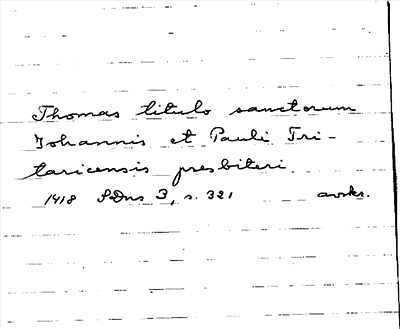 Thomas titulo sanctorum
Johannis et Pauli Tri-
taricensis presbiteri
1418 SDns 3, s. 321 avskr.